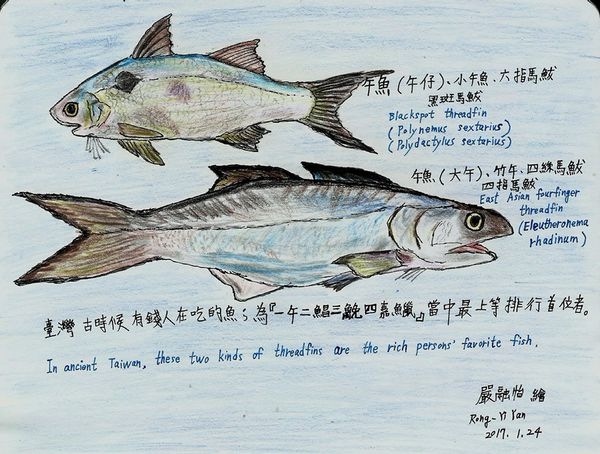 午魚(午仔)、小午魚、六指馬鮁
黑斑馬鮁
Blackspot threadfin
(Polynemus sextarius)
(Polydactylus sextarius)
午魚(大午)、竹午、四絲馬鮁
四指馬鮁
East Asian fourfinger
threadfin
(Eleutheronema
rhadinum)
臺灣古時候有錢人在吃的魚;為『一午二鯧三鮸四嘉魶』當中最上等排行首位者。
In ancient Taiwan, these two kinds of threadfins are the rich persons' favorite fish.
嚴融怡 繪
Rong-Yi Yan
2017.1.24